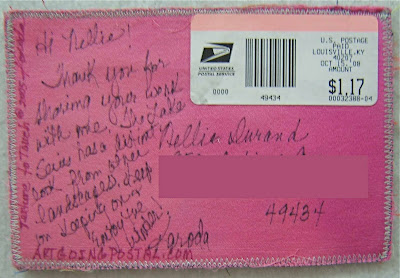 Hi Nellie!
Thank you for
sharing your work
with me. The Lake
Series has a distinct
look from other
landscapes. Keep
on Keeping on.
Enjoy life
Karoda
Nellie Durand
49434
UNITED STATES
POSTAL SERVICE
0000
49434
U.S. POSTAGE
PAID
LOUISVILLE, KY
40291
OCT 15, 08
AMOUNT
$1.17
00032388-04